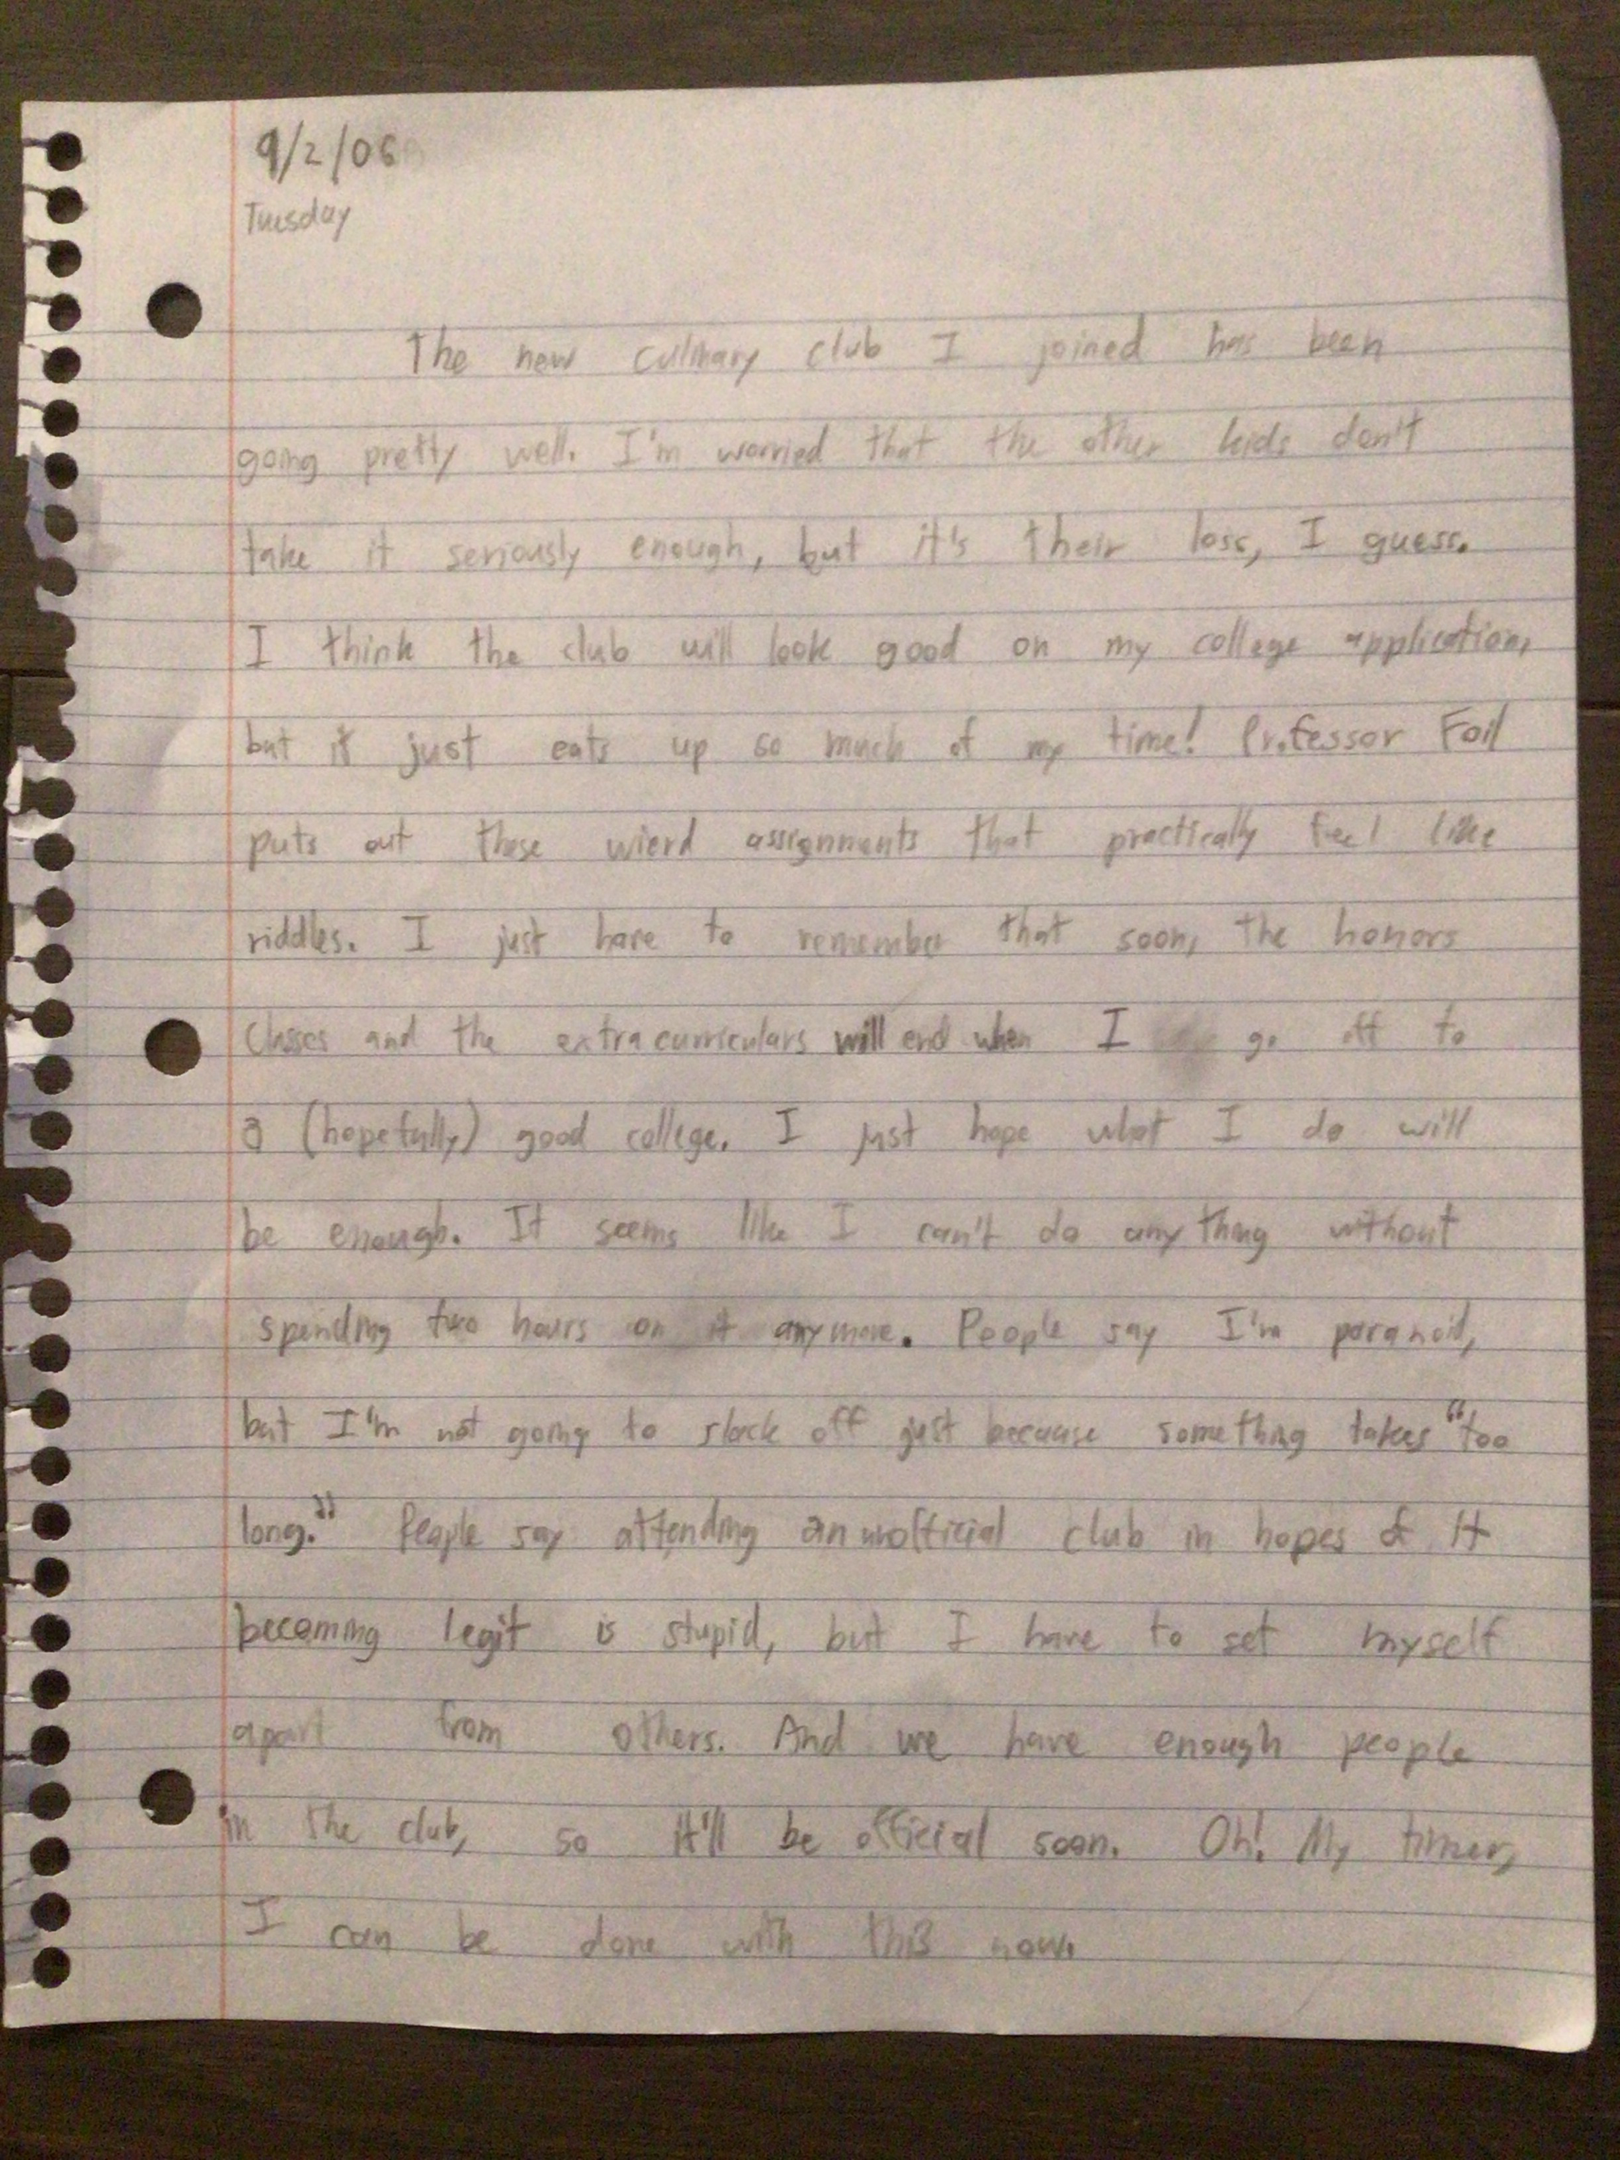 9/2/06
Tuesday
The new culinary club I joined has been
going pretty well. I'm worried that the other kids don't
take it seriously enough, but it's their loss, I guess.
I think the club will look good on my college application,
but it just eats up so much of my time! Professor Foil
puts out these wierd assignments that practically feel like
riddles. I just have to remember that soon, the honors
classes and the extracurriculars will end when I go off to
a (hopefully) good college. I just hope what I do will
be enough. It seems like I can't do anything without
spending two hours on it anymore. People say I'm paranoid,
but I'm not going to slack off just because something takes "too
long." People say attending an unofficial club in hopes of it
becoming legit is stupid, but I have to set myself
apart from others. And we have enough people
in the club, so it'll be official soon. Oh! My timer,
I can be done with this now.